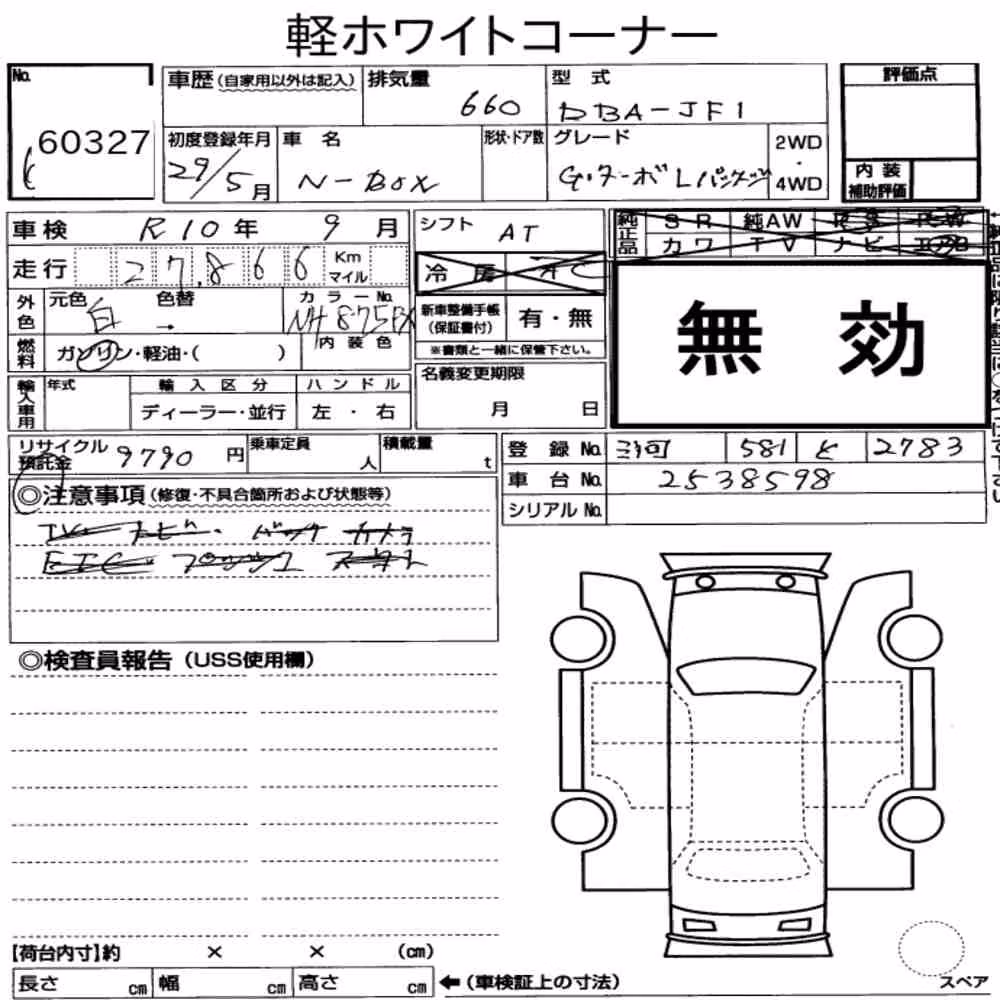 軽ホワイトコーナー
No. 60327
車歴(自家用以外は記入) 排気量 660 型式 DBA-JF1 評価点
初度登録年月 29/5月 車名 N-BOX 形状・ドア数 グレード G・ターボLパッケージ 2WD・4WD
内装補助評価
車検 R10年 9月 シフト AT 純正品 SR 純AW
カワ TV ナビ
走行 27,866 Km マイル 冷房
外色 元色 白 色替 カラーNo. NH875PX 内装色
新車整備手帳(保証書付) 有・無
※書類と一緒に保管下さい。
無効
燃料 ガソリン・軽油・( )
輸入車用 年式 輸入区分 ディーラー・並行 ハンドル 左・右
名義変更期限 月 日
リサイクル預託金 9790円 乗車定員 人 積載量 t
登録No. 581 2783
車台No. 2538598
シリアルNo.
◎注意事項(修復・不具合箇所および状態等)
TV ナビ・バック カメラ
ETC プッシュ スタート
◎検査員報告(USS使用欄)
【荷台内寸】約 × × (cm)
長さ cm 幅 cm 高さ cm ←(車検証上の寸法)
スペア